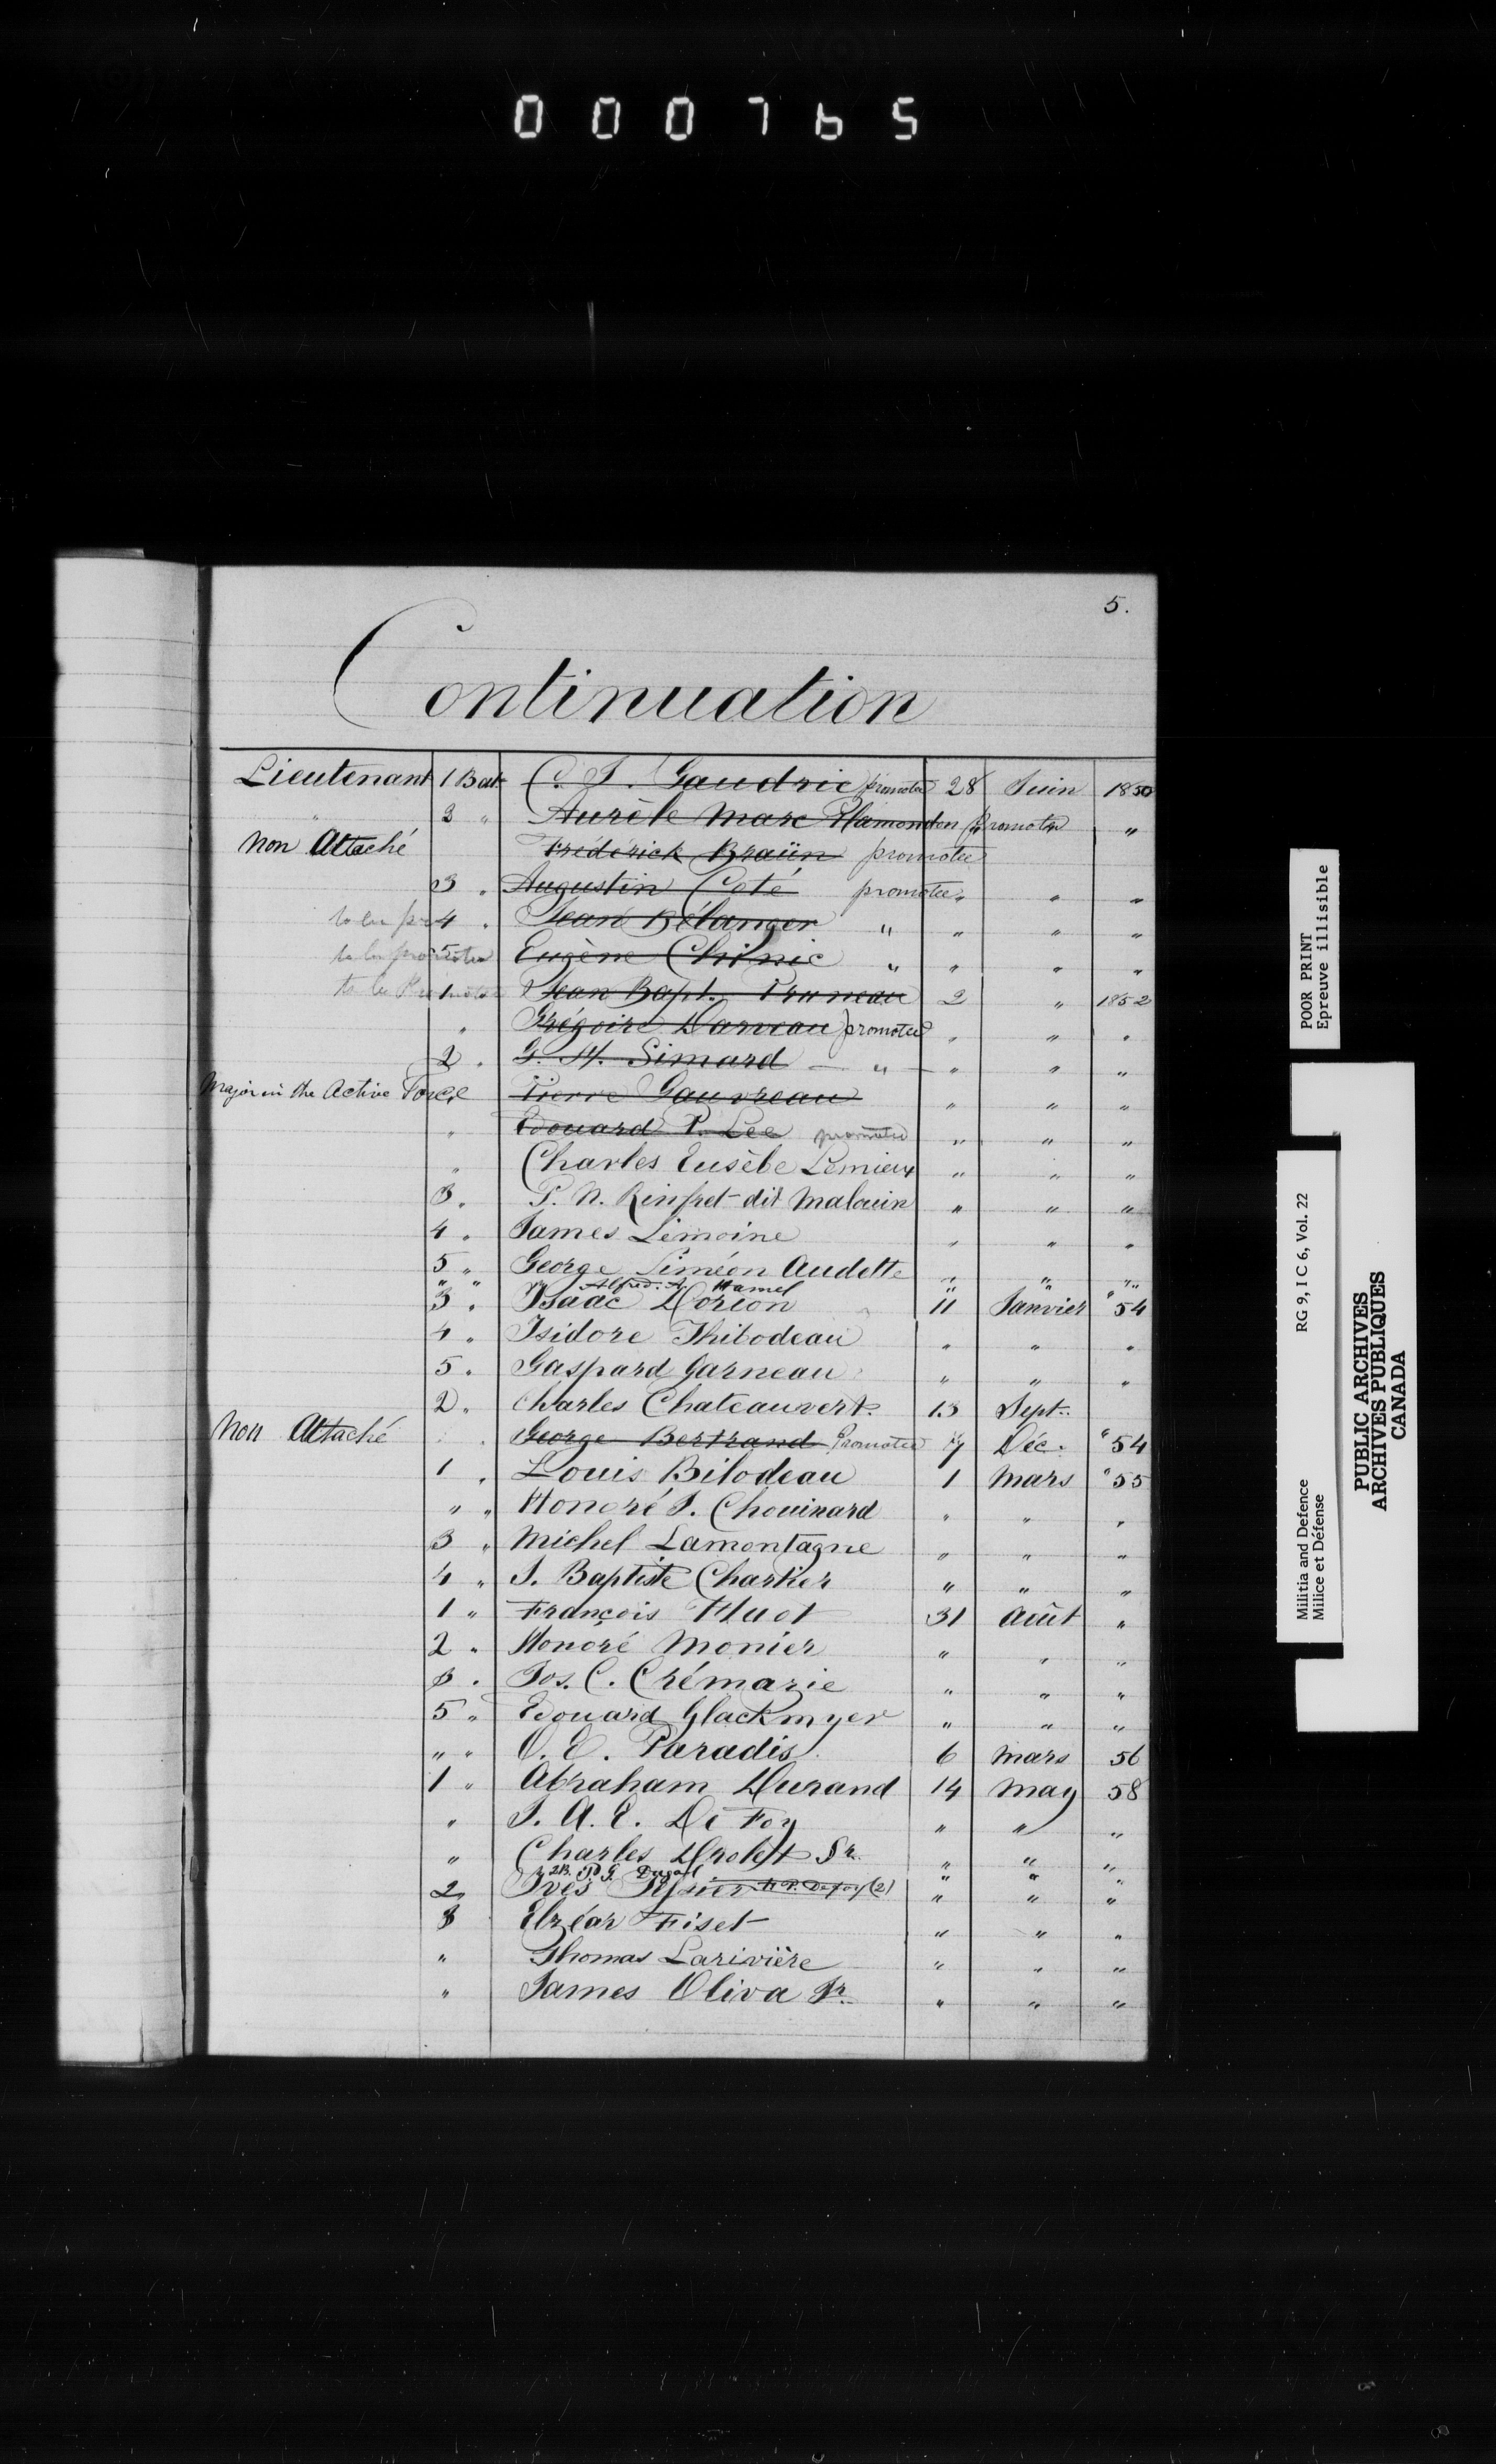 000765
5.
Continuation
Lieutenant 1 Bat. C. J. Gaudrie promoted 28 Juin 1850
" 3 " Aurèle Marc Plamondon promoted "
Non Attaché Frédérick Braün promoted
3 " Augustin Coté promoted " " "
to be pr 4 " Jean Bélanger " " " "
to be promoted 5 Eugène Chinic " " " "
to be Promoted 1 Jean Bapt. Pruneau 2 " 1852
" Grégoire Darveau promoted " " "
2 " G. H. Simard — " — " " "
Major in the Active Force Pierre Gauvreau " " "
" Edouard P. Lee promoted " " "
" Charles Eusèbe Lemieux " " "
3 " P. N. Rinfret dit Malouin " " "
4 " James Lemoine " " "
5 " George Siméon Audette " " "
" " Alfred. A. Hamel " " "
3 " Isaac Dorion 11 Janvier " 54
4 " Isidore Thibodeau " " "
5 " Gaspard Garneau " " "
2 " Charles Chateauvert 13 Sept.
Non Attaché " George Bertrand Promoted 7 Déc. " 54
1 " Louis Bilodeau 1 Mars " 55
" " Honoré J. Chouinard " " "
3 " Michel Lamontagne " " "
4 " J. Baptiste Chartier " " "
1 " François Huot 31 Août "
2 " Honoré Monier " " "
3 " Jos. C. Crémazie " " "
5 " Edouard Glackmyer " " "
" " O. E. Paradis 6 Mars 56
1 " Abraham Durand 14 May 58
" J. A. E. De Foy " " "
" Charles Drolet Sr. " " "
2B. P. G. Dugal " " "
2 " Ives " " "
3 Elzéar Fiset " " "
" Thomas Larivière " " "
" James Oliva Jr. " " "
POOR PRINT
Epreuve illisible
RG 9, I C 6, Vol. 22
Militia and Defence
Milice et Défense
PUBLIC ARCHIVES
ARCHIVES PUBLIQUES
CANADA